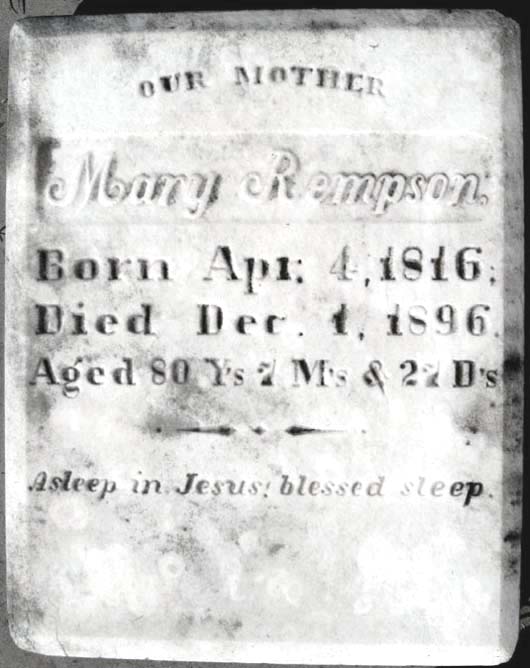 OUR MOTHER
Mary Rempson;
Born Apr. 4, 1816;
Died Dec. 1, 1896.
Aged 80 Ys 7 M's & 27 D's
Asleep in Jesus; blessed sleep.